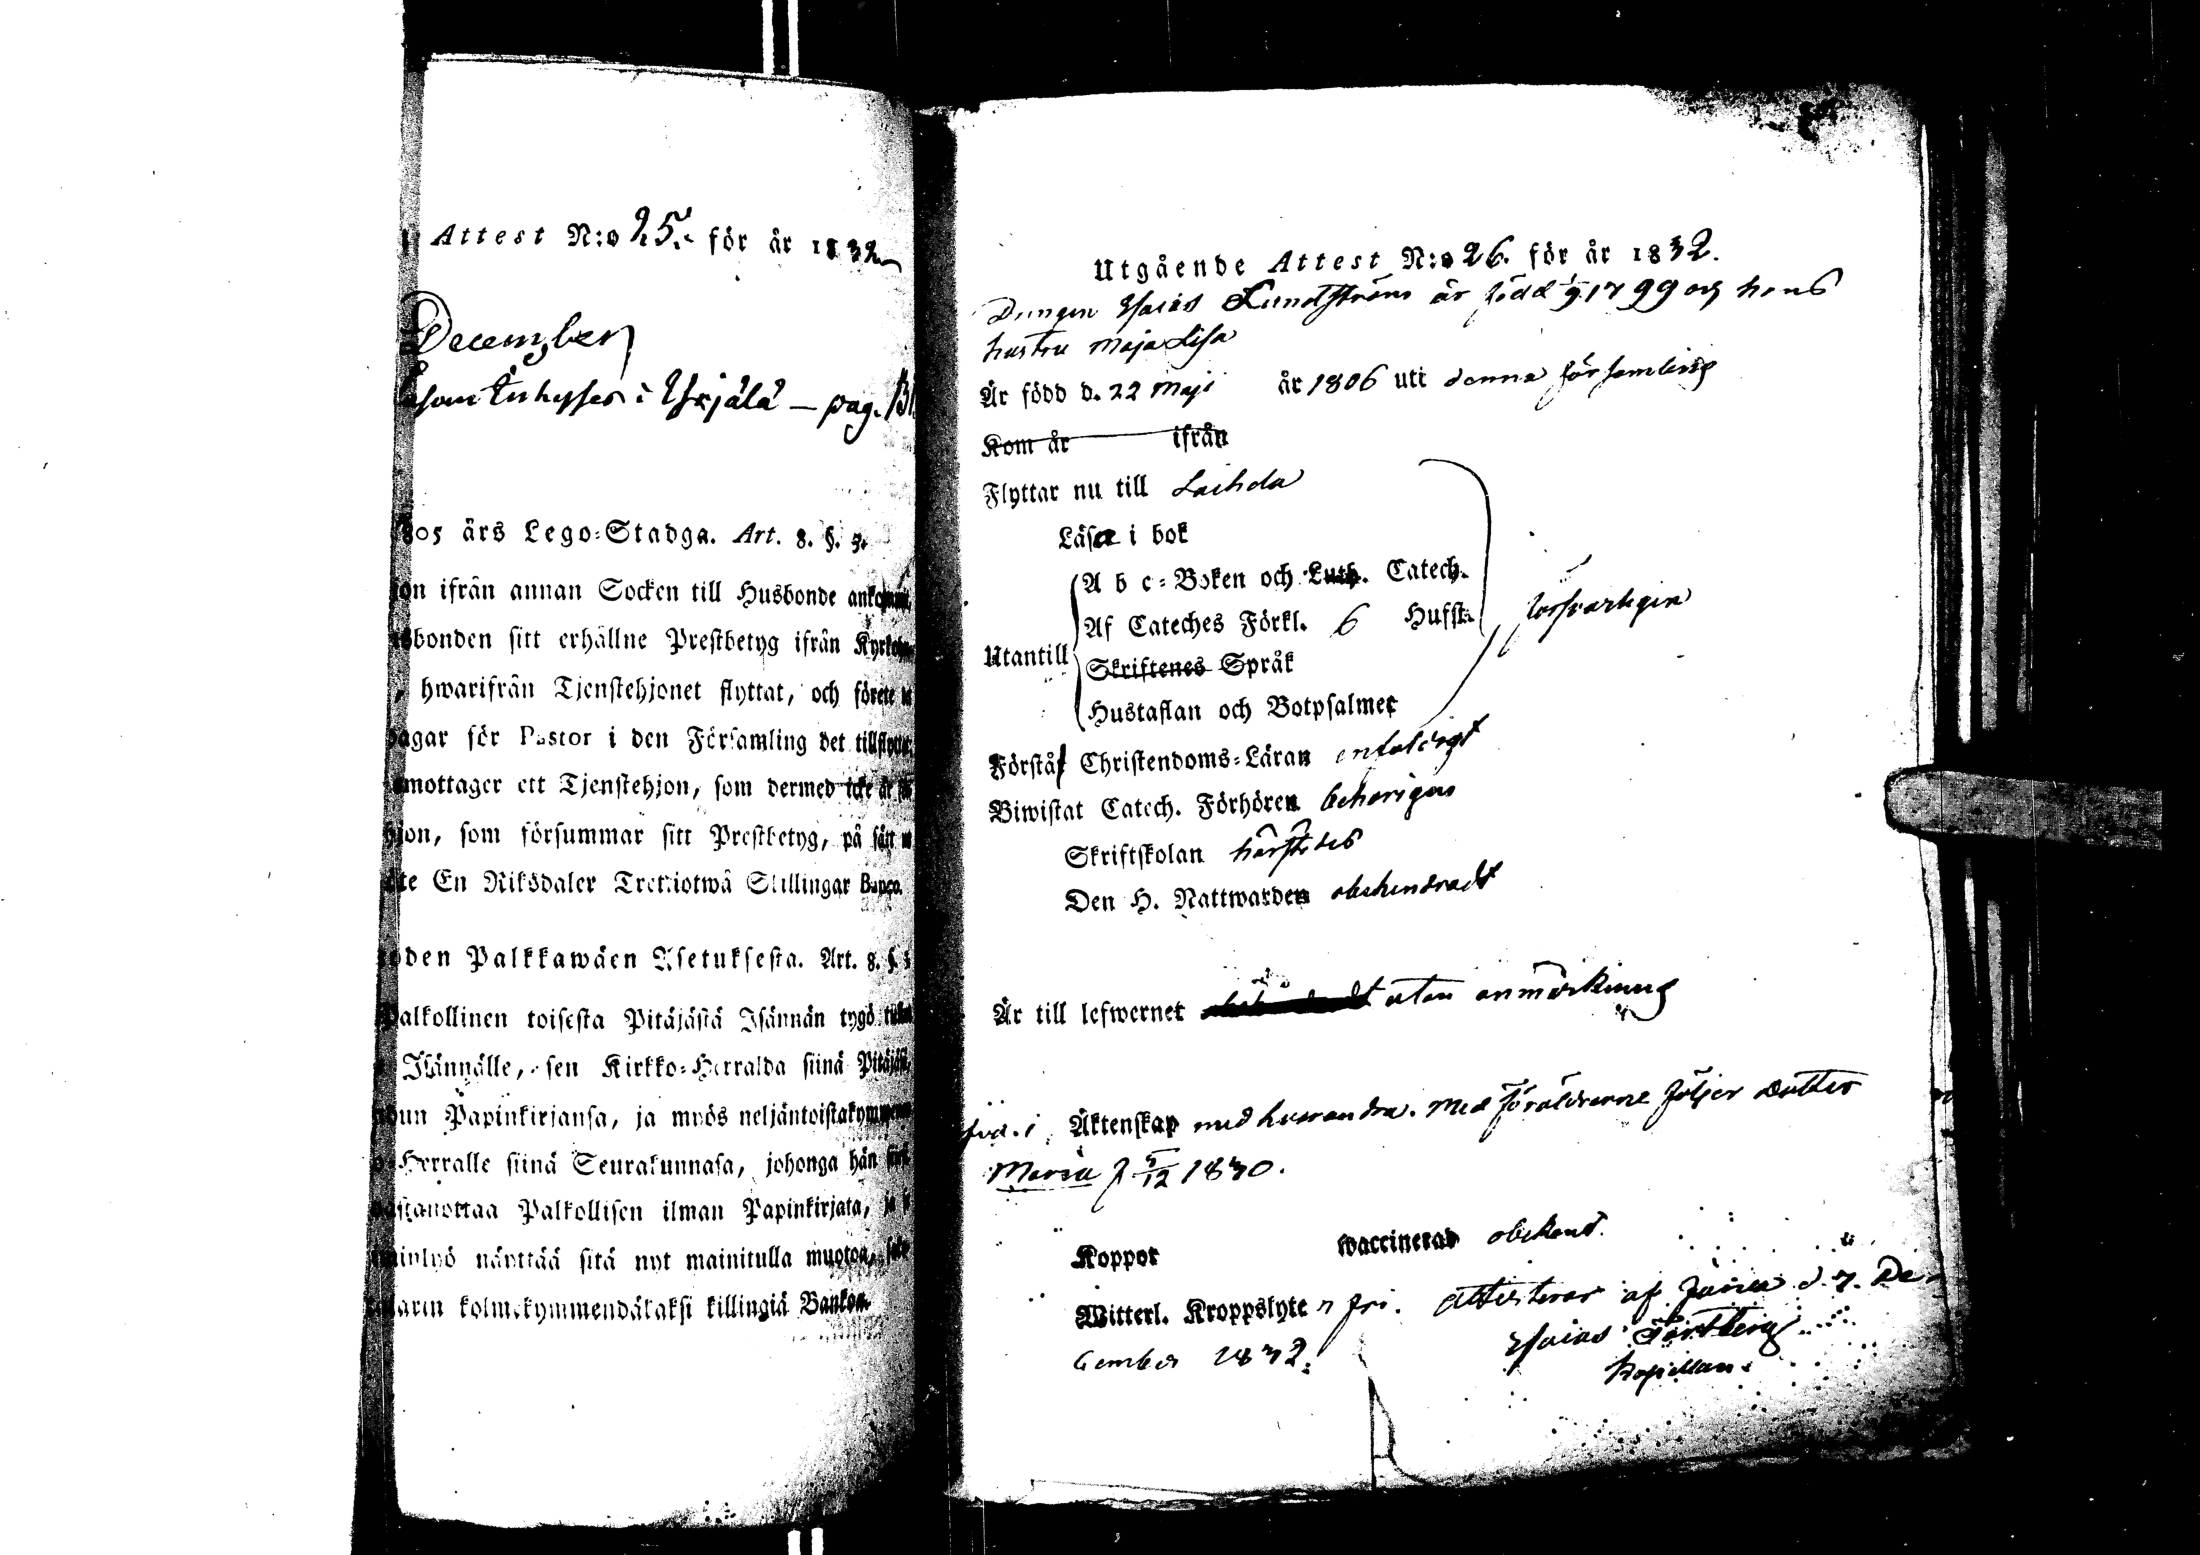 Attest N:o 25. för år 1832
December
som Inhyses i Yskjälä — pag. 131
805 års Lego-Stadga. Art. 8. §. 5.
ifrån annan Socken till Husbonde
sbonden sitt erhållne Prestbetyg ifrån
, hwarifrån Tjenstehjonet flyttat, och förete
dagar för Pastor i den Församling det
emottager ett Tjenstehjon, som dermed icke är
hjon, som försummar sitt Prestbetyg, på sätt
te En Riksdaler Trettiotwå Skillingar Banco.
den Palkkawäen Asetuksesta. Art. 8. §.
Palkollinen toisesta Pitäjästä Isännän tygö
Isännälle, sen Kirkko-Herralda siinä
un Papinkirjansa, ja myös
Herralle siinä Seurakunnasa, johonga hän
wastanottaa Palkollisen ilman Papinkirjata, ja
näyttää sitä nyt mainitulla muotoa,
kolmekymmendäkaksi killingiä Bankoa.
Utgående Attest N:o 26. för år 1832.
Drengen Esaias Lundström är född 1/9 1799 och hans
hustru Maja Lisa
Är född d. 22 Maji år 1806 uti denna församling
Kom år ifrån
Flyttar nu till Laihela
Läsa i bok
A b c-Boken och Luth. Catech.
Af Cateches Förkl. 6 Hufst.
försvarligen
Utantill
Skriftenes Språk
Hustaflan och Botpsalmer
Förstår Christendoms-Läran enfaldigt
Biwistat Catech. Förhören behörigen
Skriftskolan härstädes
Den H. Nattwarden obehindradt
Är till lefwernet utan anmärkning
Äktenskap med hwarandra. Med föräldrarne följer dotter
Maria f 5/12 1830.
Koppor waccinerad obekant.
Witterl. Kroppslyte n fri. Attesterar af d. 7. De-
cember 1832.
Esaias
Kapellan.